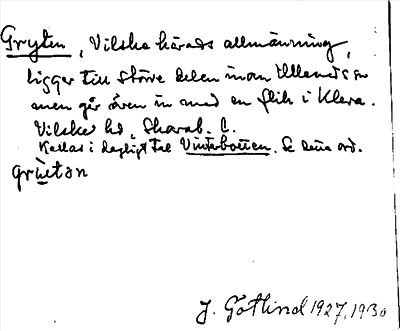 Gryten, Vilske härads allmänning,
ligger till större delen inom Ullene sn
men går även in med en flik i Kleva.
Vilske hd, Skarab. l.
Kallas i dagligt tal Vinterbotten. Se detta ord.
grùtən
J. Götlind 1927, 1930